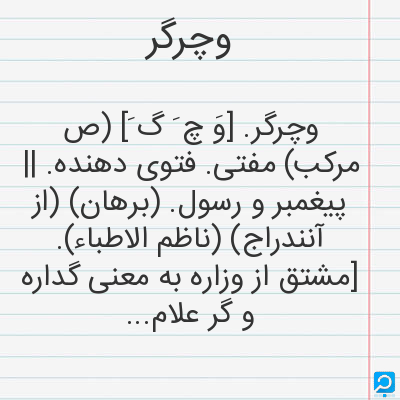 وچرگر
وچرگر. [وَ چ َ گ َ] (ص
مرکب) مفتی. فتوی دهنده. ||
پیغمبر و رسول. (برهان) (از
آنندراج) (ناظم الاطباء).
[مشتق از وزاره به معنی گداره
و گر علام...